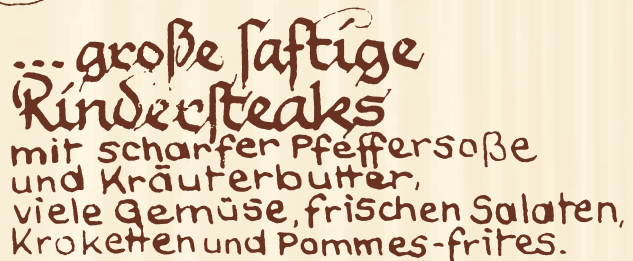 ...große ſaftige
Rinderſteaks
mit scharfer Pfeffersoße
und Kräuterbutter,
viele Gemüse, frischen Salaten,
Kroketten und Pommes-frites.